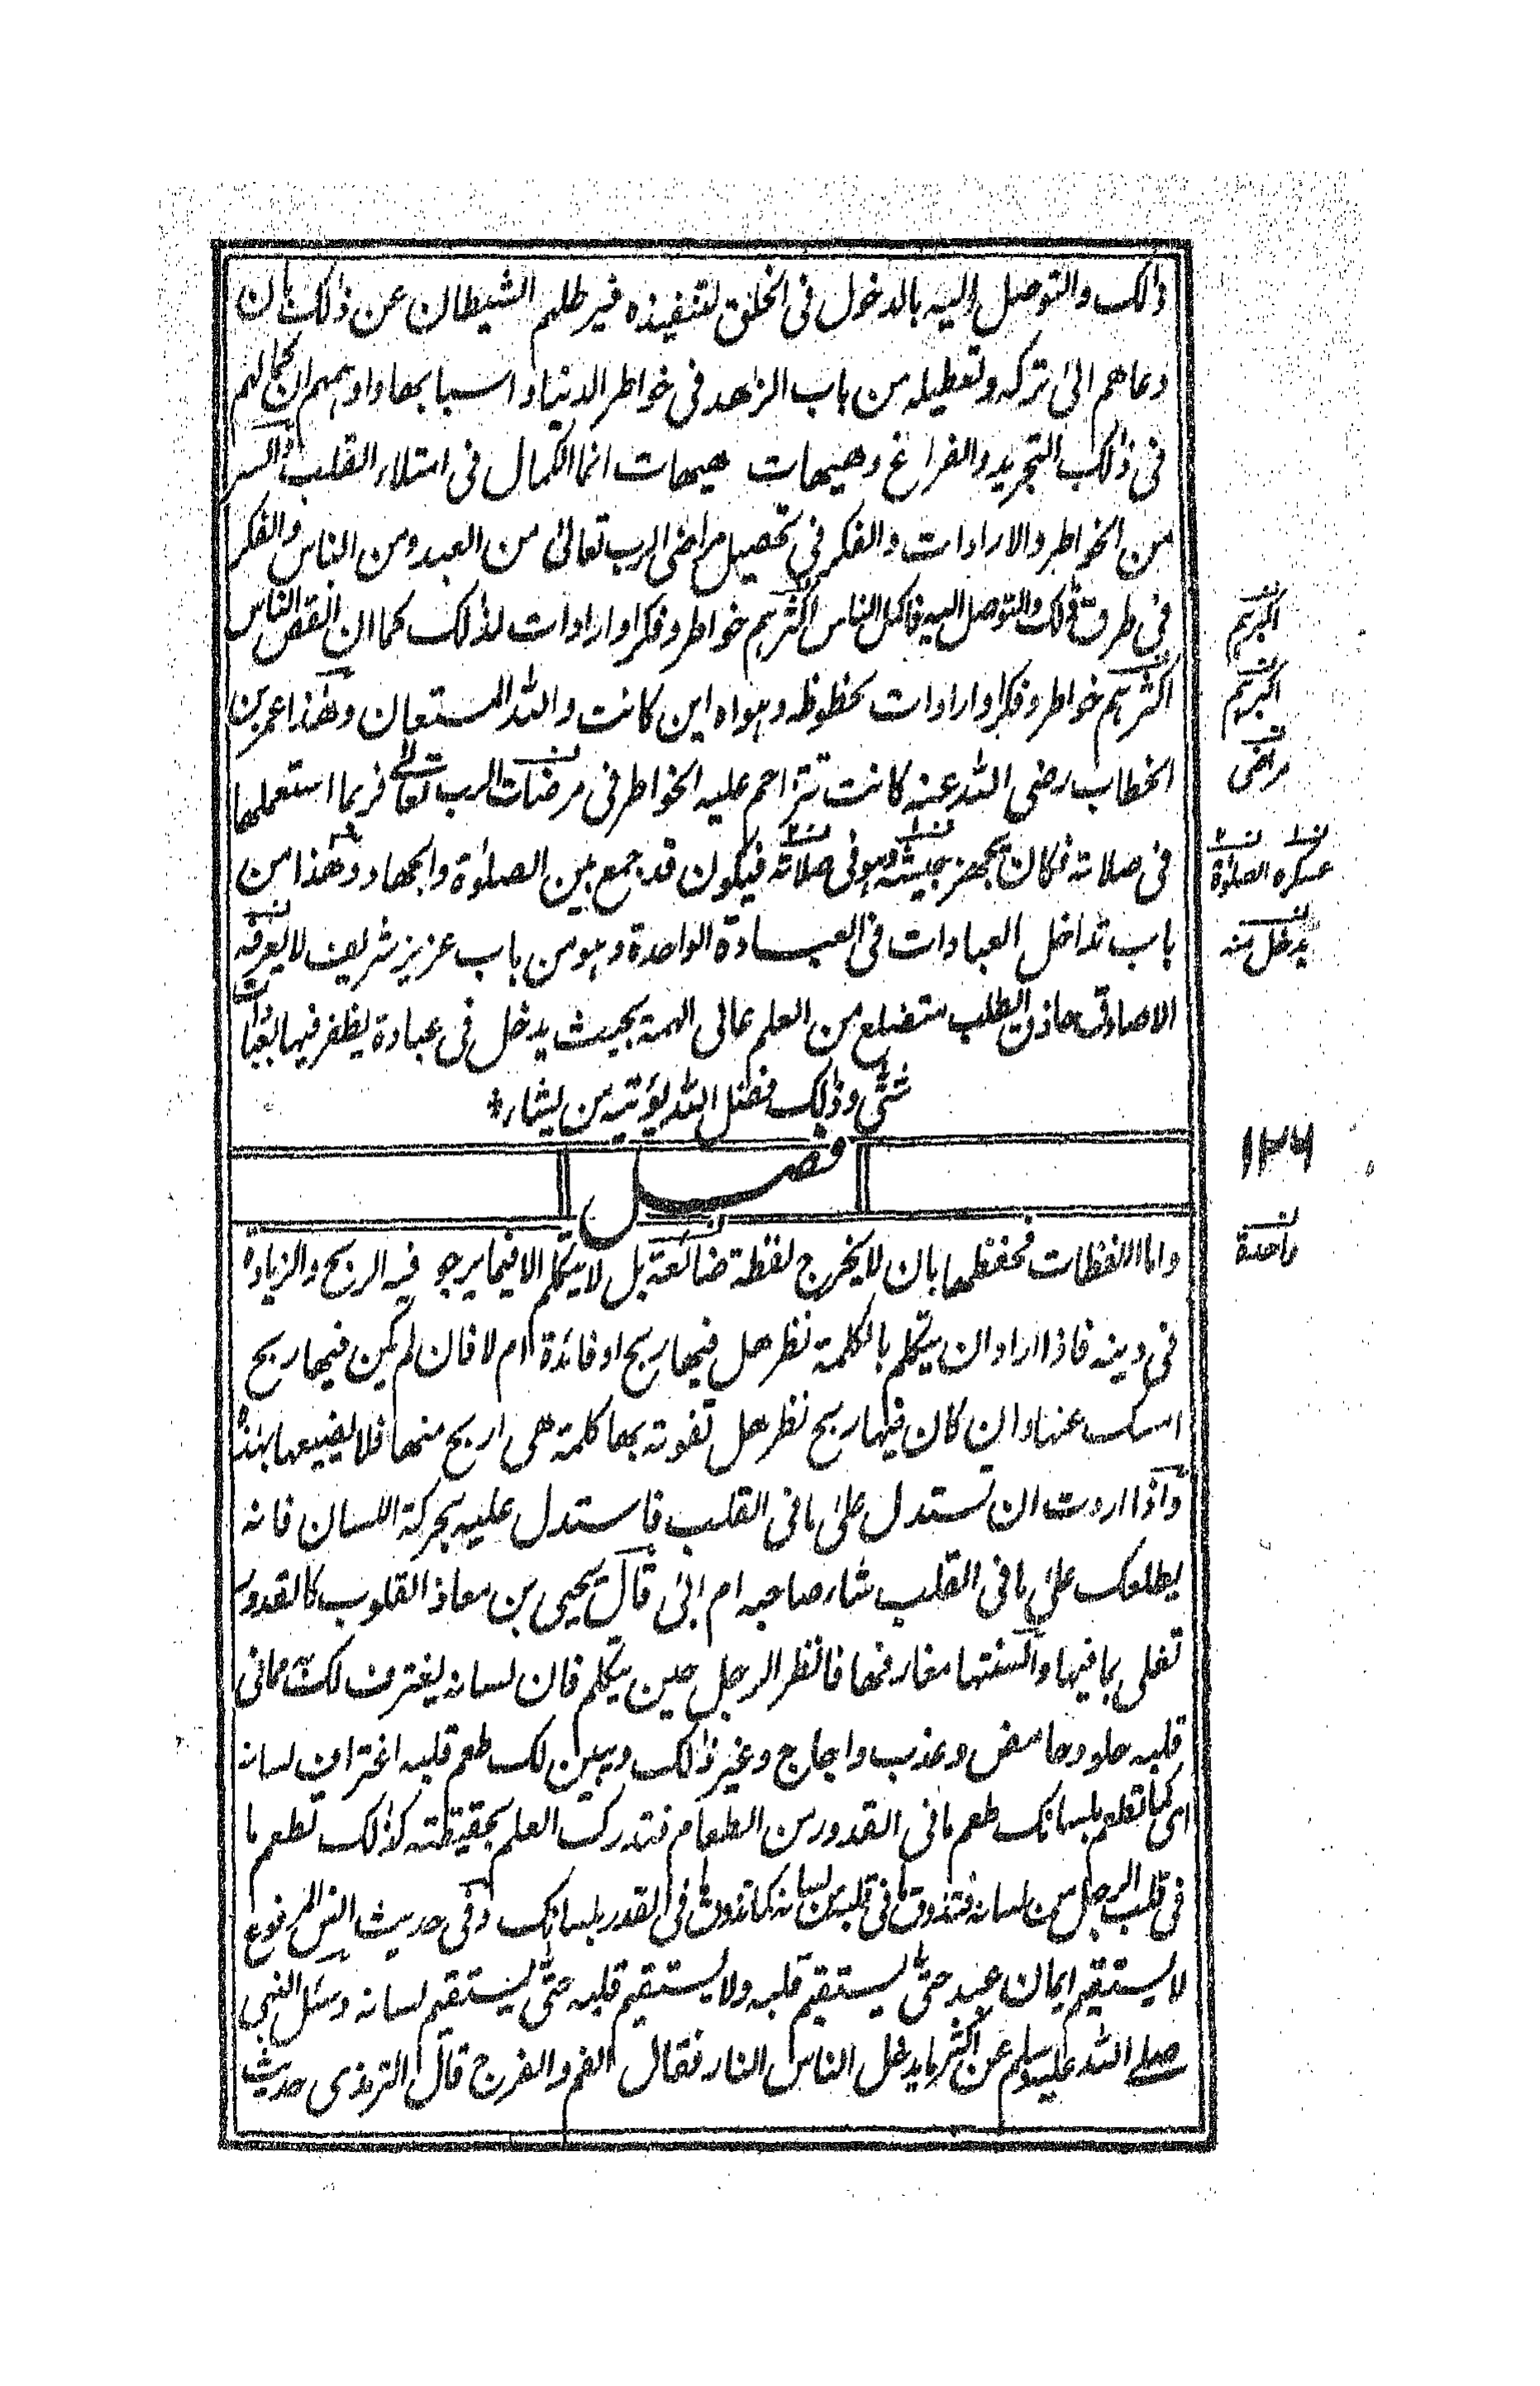 ذلك والتوصل اليه بالدخول فى الخلق لتنفيذه فيرطلهم الشيطان عن ذلك بان
دعاهم الى تركه وتعطيله من باب الزهد فى خواطر الدنيا واسبابها واوهمهم ان كمالهم
فى ذلك التجريد والفراغ وهيهات هيهات انما الكمال فى امتلاء القلب والسر
من الخواطر والارادات والفكر فى تحصيل مراضى الرب تعالى من العبد ومن الناس والفكر
فى طرق ذلك والتوصل اليه فاكمل الناس اكثرهم خواطر وفكرا وارادات لذلك كما ان انقص الناس
اكثرهم خواطر وفكرا وارادات لحظوظه وهواه اين كانت والله المستعان وهذا عمر بن
الخطاب رضى الله عنه كانت تتزاحم عليه الخواطر فى مرضات الرب تعالى فربما استعملها
فى صلاته فكان يجهز جيشه وهو فى صلاته فيكون قد جمع بين الصلوة والجهاد وهذا من
باب تداخل العبادات فى العبادة الواحدة وهو من باب عزيز شريف لا يعرفه
الا صادق حاذق الطلب متضلع من العلم عالى الهمة بحيث يدخل فى عبادة يظفر فيها بعبادات
شتى وذلك فضل الله يؤتيه من يشاء*
فصل
واما اللفظات فحفظها بان لا يخرج لفظة ضائعة بل لا يتكلم الا فيما يرجو فيه الربح والزيادة
فى دينه فاذا اراد ان يتكلم بالكلمة نظر هل فيها ربح او فائدة ام لا فان لم يكن فيها ربح
امسك عنها وان كان فيها ربح نظر هل تفوته بها كلمة هى اربح منها فلا يضيعها بهذه
واذا اردت ان تستدل على ما فى القلب فاستدل عليه بحركة اللسان فانه
يطلعك على ما فى القلب شاء صاحبه ام ابى قال يحيى بن معاذ القلوب كالقدور
تغلى بما فيها والسنتها مغارفها فانظر الرجل حين يتكلم فان لسانه يغترف لك مما فى
قلبه حلو وحامض وعذب واجاج وغير ذلك ويبين لك طعم قلبه اغتراف لسانه
اى كما تطعم بلسانك طعم ما فى القدور من الطعام فتدرك العلم بحقيقته كذلك تطعم ما
فى قلب الرجل من لسانه فتذوق ما فى قلبه من لسانه كما تذوق ما فى القدر بلسانك وفى حديث انس المرفوع
لا يستقيم ايمان عبد حتى يستقيم قلبه ولا يستقيم قلبه حتى يستقيم لسانه وسئل النبى
صلى الله عليه وسلم عن اكثر ما يدخل الناس النار فقال الفم والفرج قال الترمذى حديث
اكبرهم
اكبرهم
مراضى
عسكره الصلوة
يدخل منه
١٢٦
واحدة